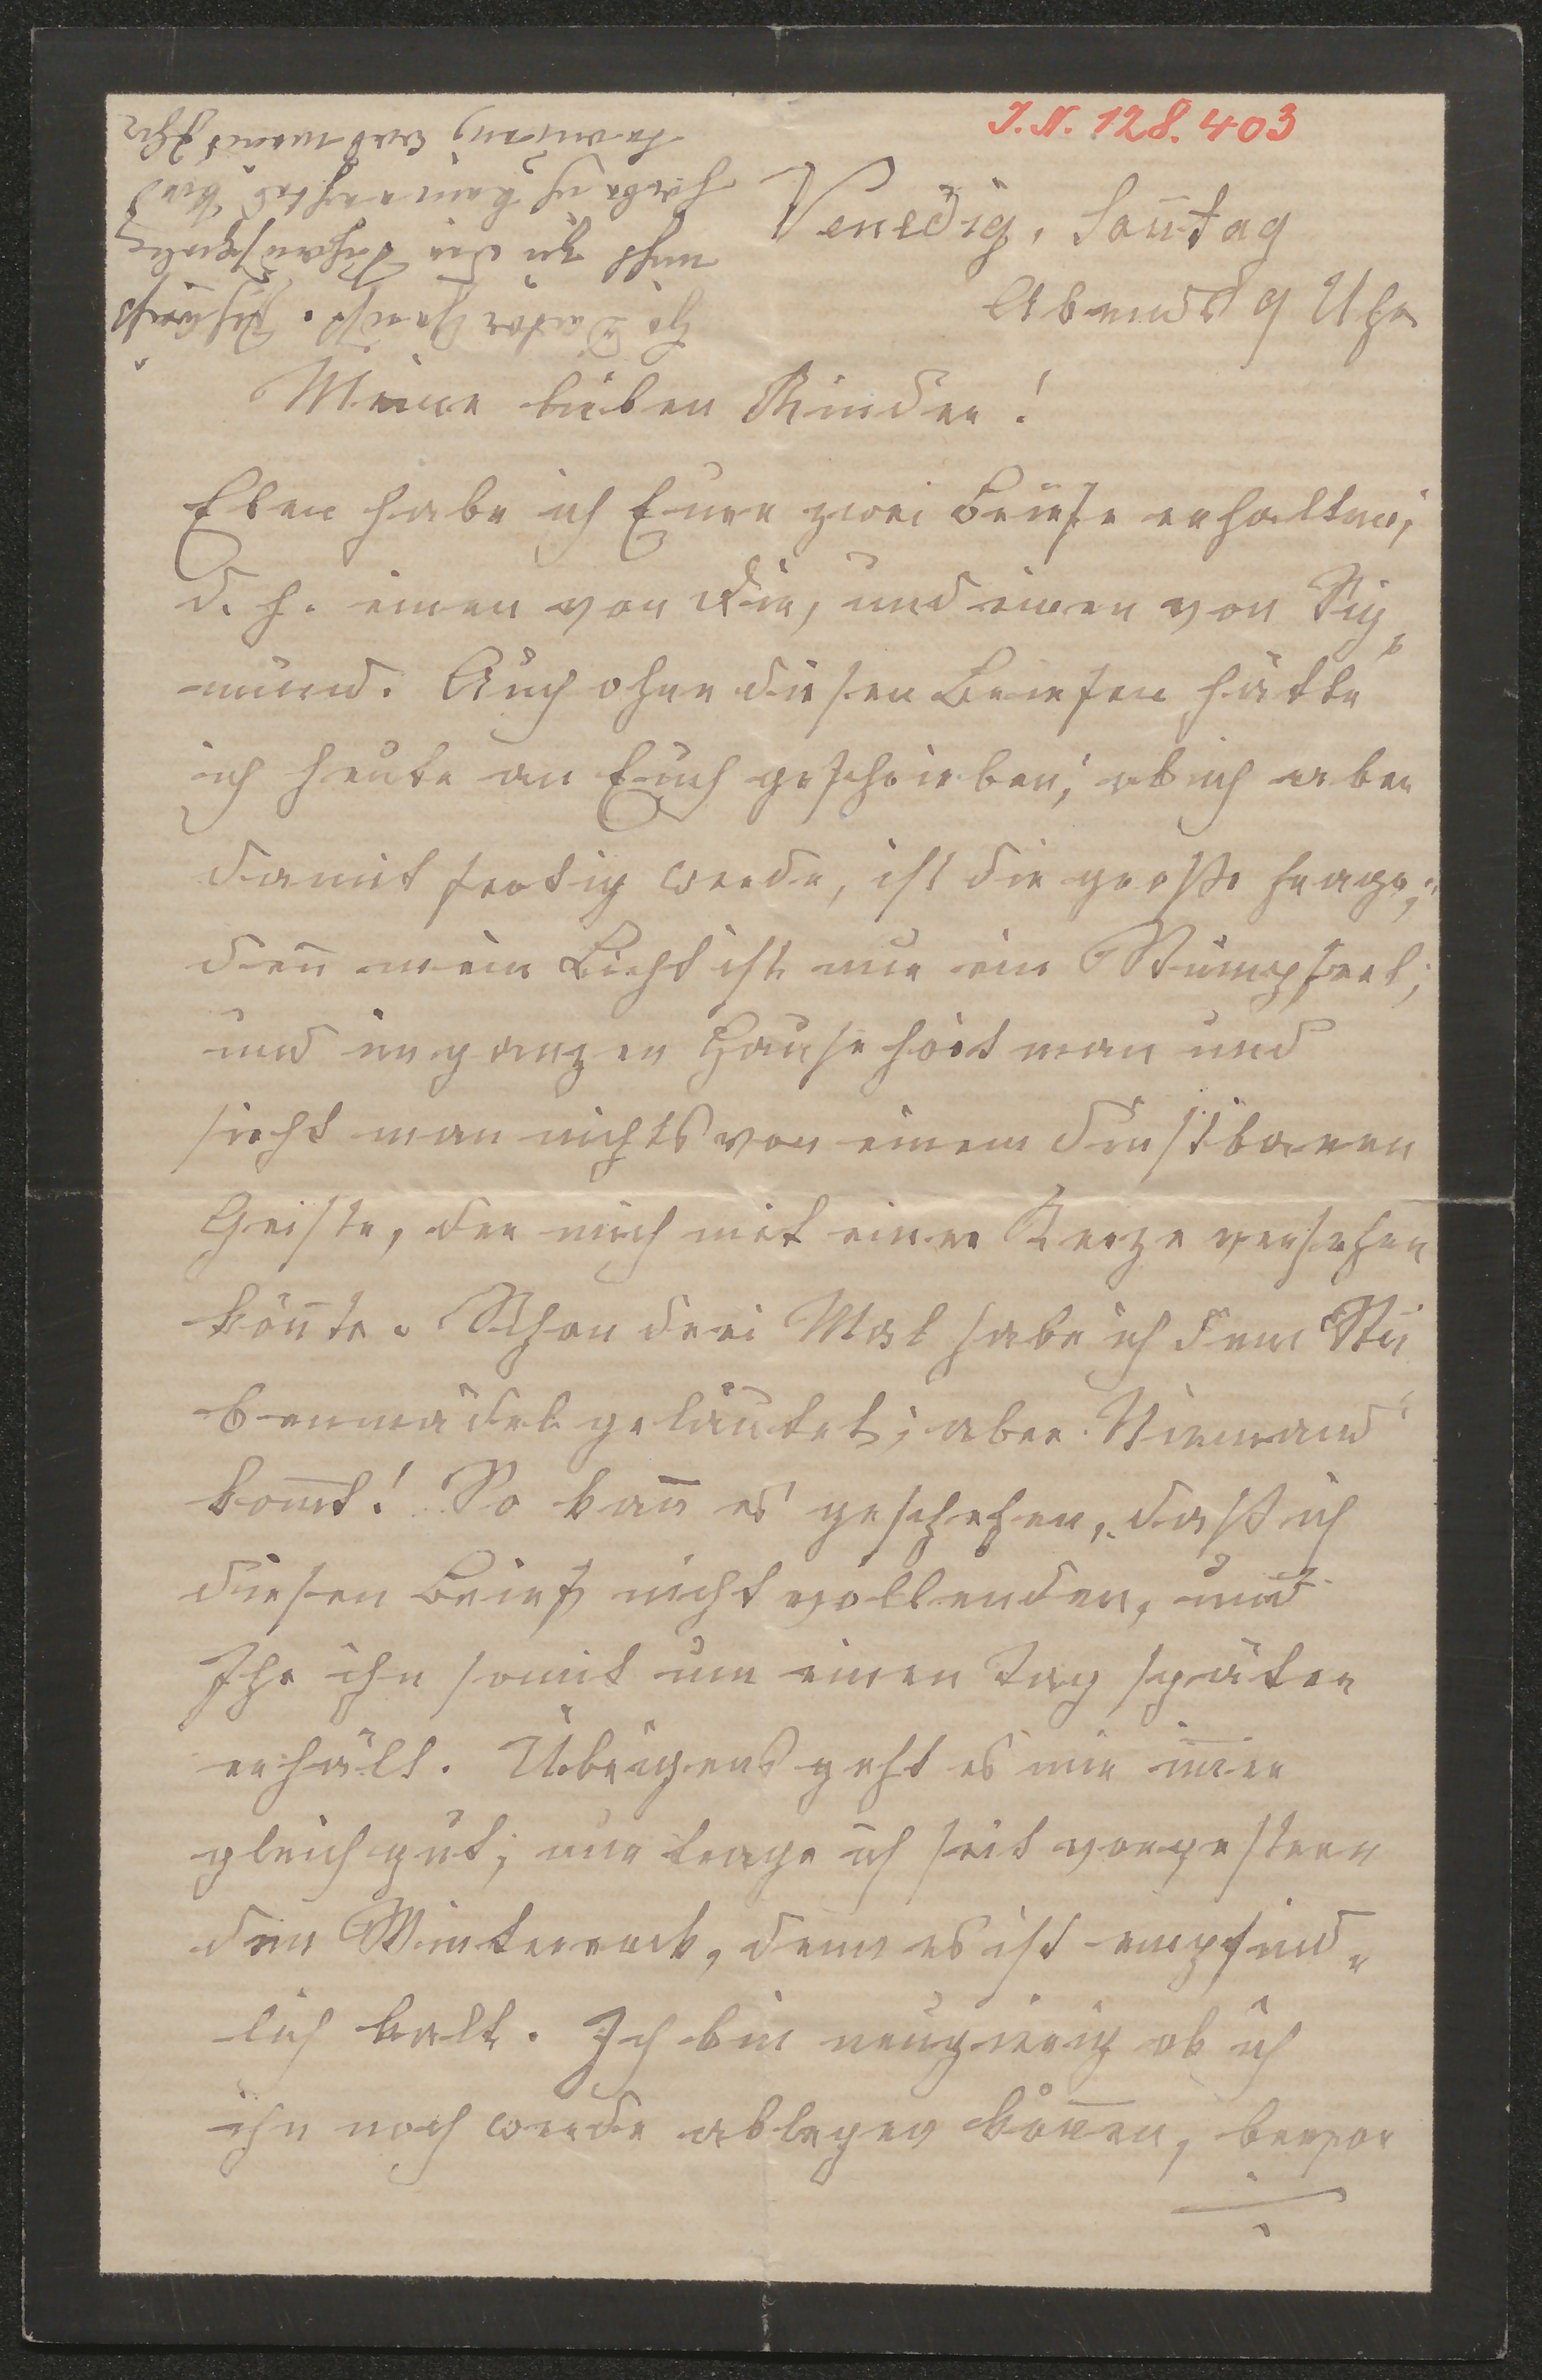 I. N. 128.403
Venedig, Soñtag
Abends 9 Uhr
Meine lieben Kinder!
Eben habe ich Eure zwei Briefe erhalten,
d. h. einen von Dir, und einen von Sig-
mund. Auch ohne diesen Briefen hätte
ich heute an Euch geschrieben; ob ich aber
damit fertig werde, ist die große Frage;
deñ mein Licht ist nur ein Stümpferl;
und im ganzen Hause hört man und
sieht man nichts von einem dienstbaren
Geiste, der mich mit einer Kerze versehen
köñte. Schon drei Mal habe ich dem Stu
benmädel geläutet; aber Niemand
kom̄t! So kañ es geschehen, daß ich
diesen Brief nicht vollenden, und
Ihr ihn somit um einen Tag später
erhält. Übrigens geht es mir im̄er
gleich gut; nur trage ich seit vorgestern
den Winterrock, denn es ist empfind-
lich kalt. Ich bin neugierig ob ich
ihn noch werde ablegen köñen, bevor
nicht zu die
habe ich kein